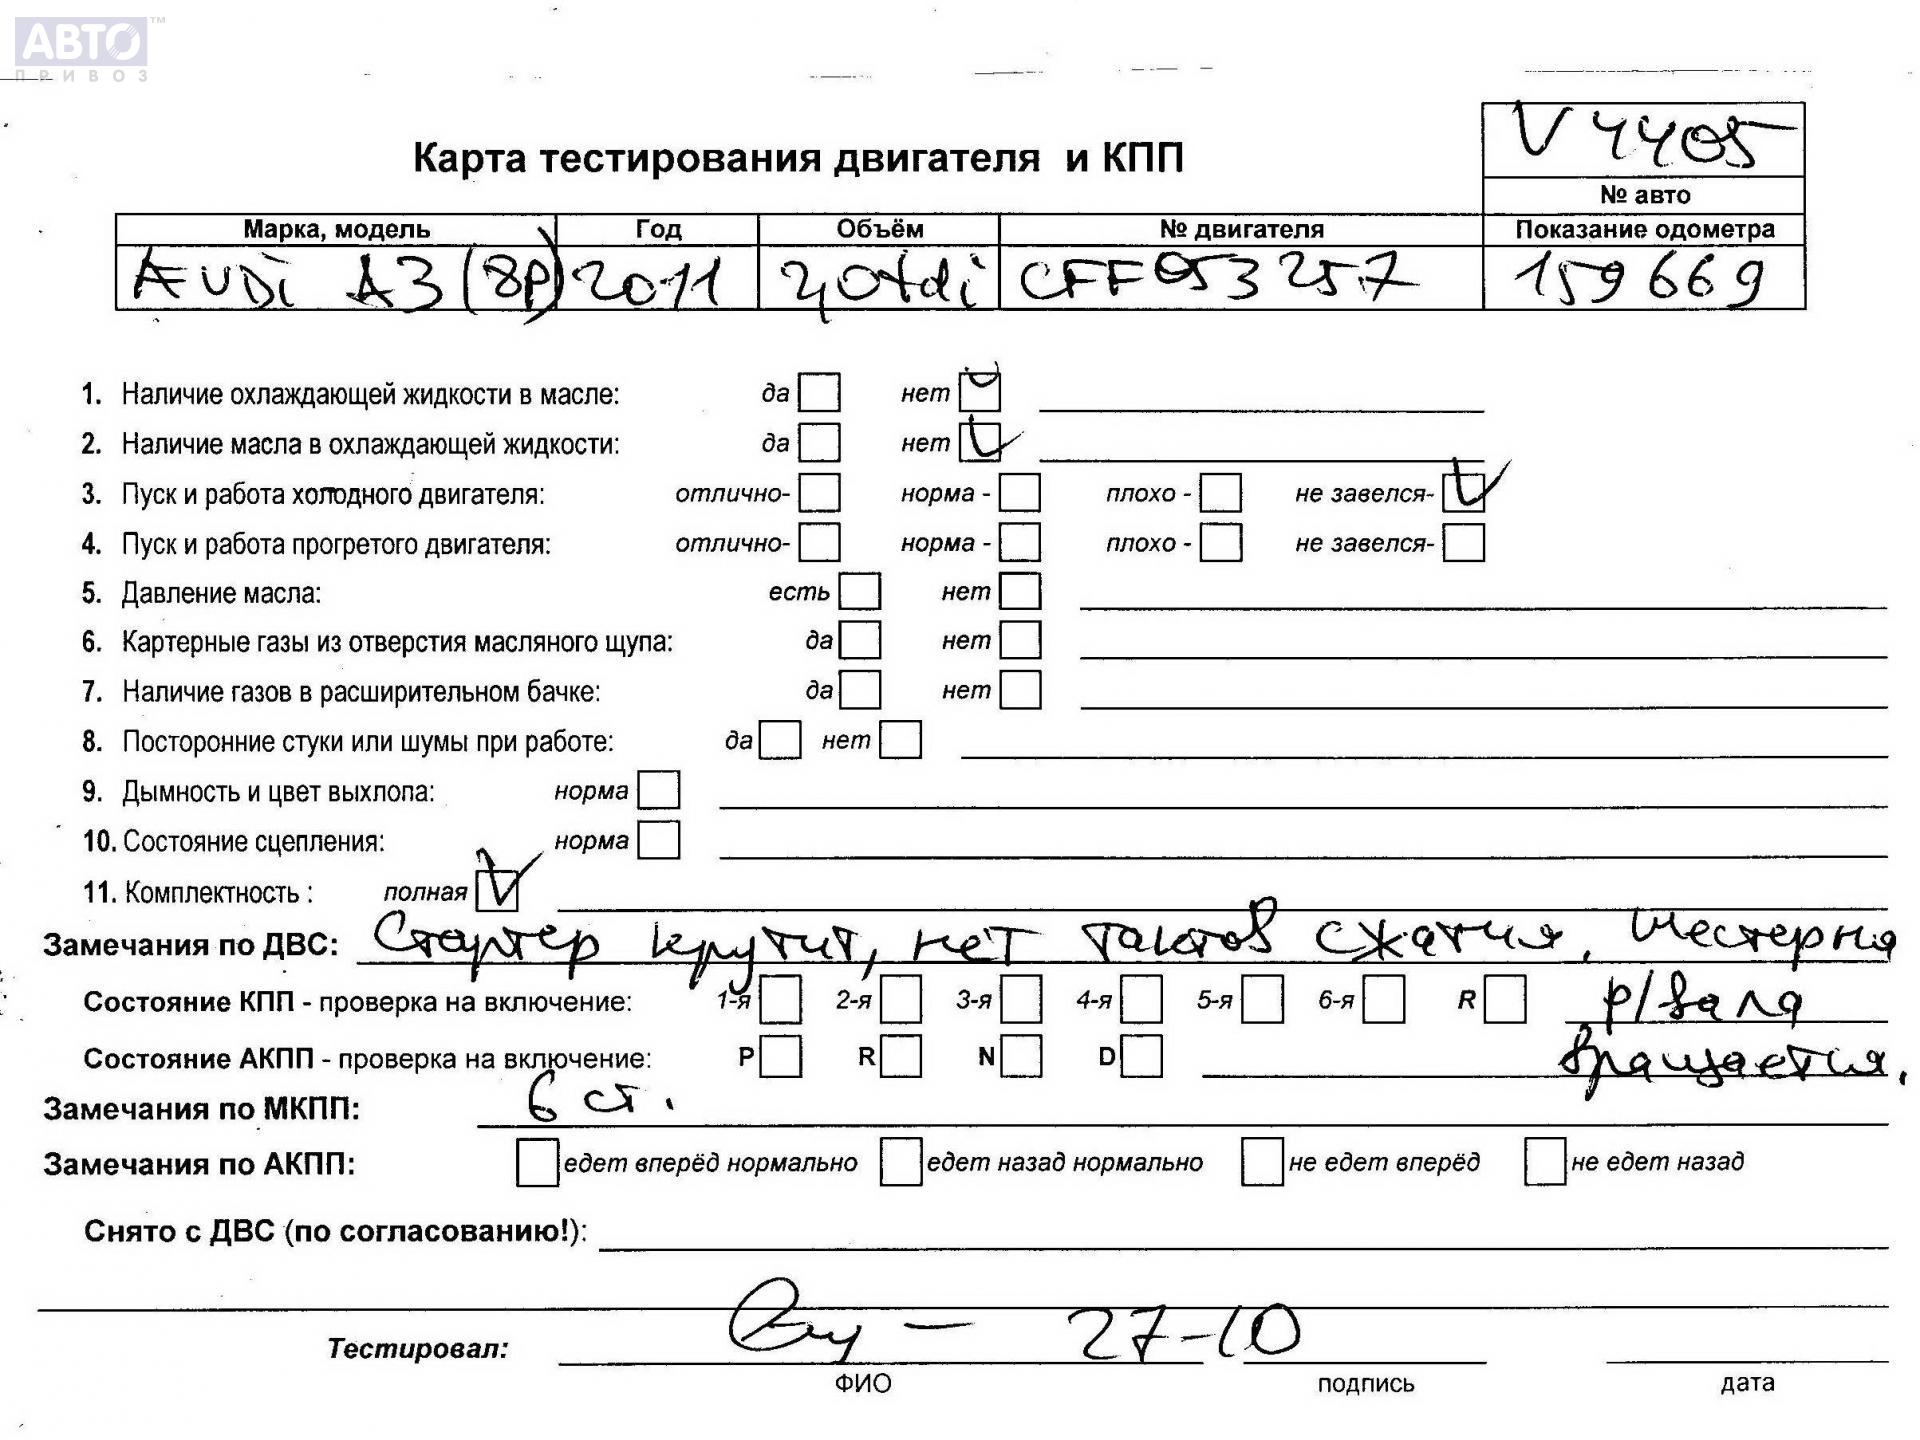 АВТО™
ПРИВОЗ
V4405
Карта тестирования двигателя и КПП
№ авто
Марка, модель Год Объём № двигателя Показание одометра
AUDi A3 (8P) 2011 2,0tdi CFF053257 159669
1. Наличие охлаждающей жидкости в масле: да нет
2. Наличие масла в охлаждающей жидкости: да нет
3. Пуск и работа холодного двигателя: отлично- норма - плохо - не завелся-
4. Пуск и работа прогретого двигателя: отлично- норма - плохо - не завелся-
5. Давление масла: есть нет
6. Картерные газы из отверстия масляного щупа: да нет
7. Наличие газов в расширительном бачке: да нет
8. Посторонние стуки или шумы при работе: да нет
9. Дымность и цвет выхлопа: норма
10. Состояние сцепления: норма
11. Комплектность : полная
Замечания по ДВС: Стартер крутит, нет тактов сжатия. Шестерня
Состояние КПП - проверка на включение: 1-я 2-я 3-я 4-я 5-я 6-я R р/вала
Состояние АКПП - проверка на включение: P R N D вращается.
Замечания по МКПП: 6 ст.
Замечания по АКПП: едет вперёд нормально едет назад нормально не едет вперёд не едет назад
Снято с ДВС (по согласованию!):
Тестировал: 27-10
ФИО подпись дата